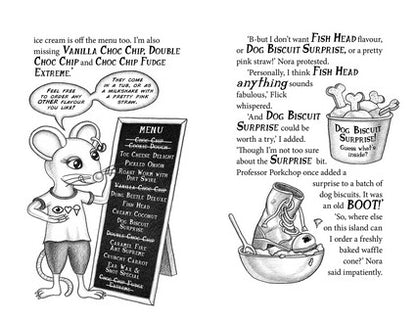 ice cream is off the menu too. I'm also
missing Vanilla Choc Chip, Double
Choc Chip and Choc Chip Fudge
Extreme.'
Feel free
to order any
OTHER flavour
you like!
They come
in a tub, or as
a milkshake with
a pretty pink
straw.
MENU
Choc Chip
Cookie Dough
Toe Cheese Delight
Pickled Onion
Roast Worm with
Dirt Swirl
Vanilla Choc Chip
Dung Beetle Deluxe
Fish Head
Creamy Coconut
Dog Biscuit
Surprise
Double Choc Chip
Caramel Fire
Ant Supreme
Crunchy Carrot
Ear Wax &
Snot Special
Choc Chip Fudge
Extreme
'B-but I don't want Fish Head flavour,
or Dog Biscuit Surprise, or a pretty
pink straw!' Nora protested.
'Personally, I think Fish Head
anything sounds
fabulous,' Flick
whispered.
'And Dog Biscuit
Surprise could be
worth a try,' I added.
'Though I'm not too sure
about the Surprise bit.
Professor Porkchop once added a
surprise to a batch of
dog biscuits. It was
an old BOOT!'
'So, where else
on this island can
I order a freshly
baked waffle
cone?' Nora
said impatiently.
Dog Biscuit
Surprise!
Guess what's
inside?